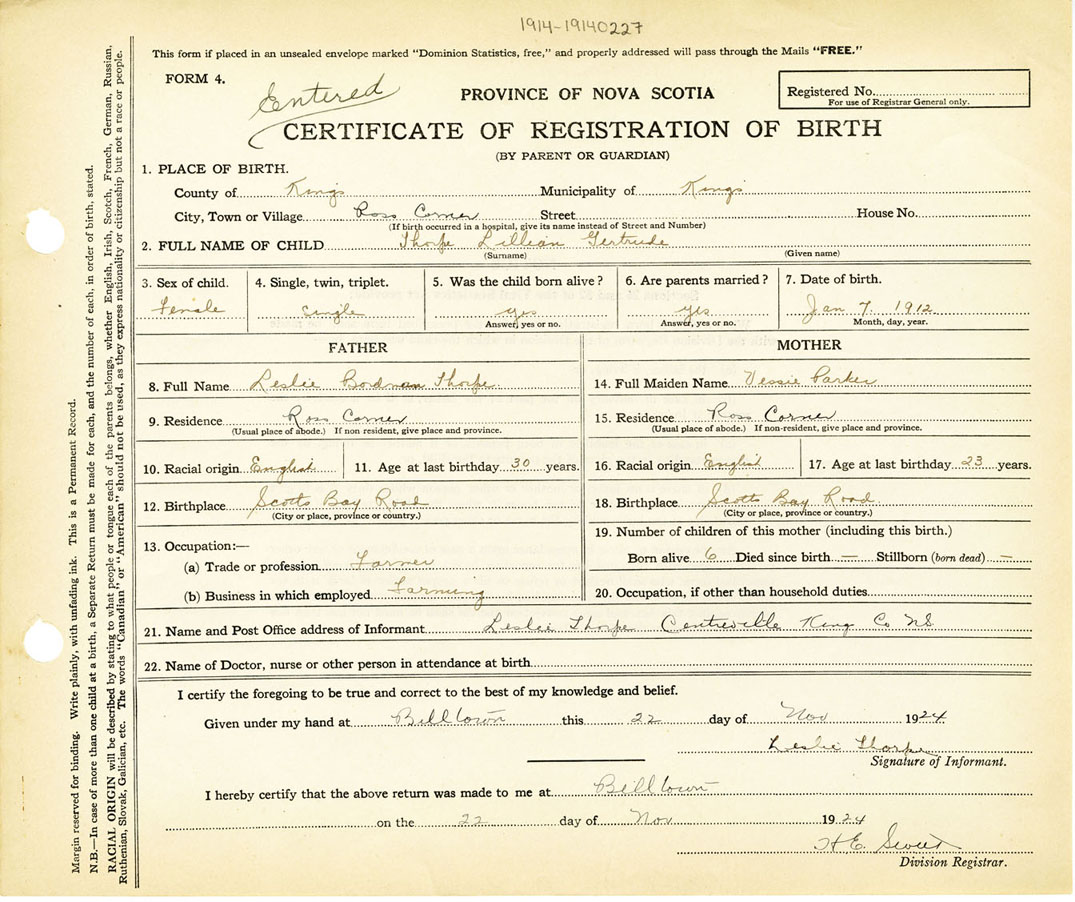 1914-19140227
This form if placed in an unsealed envelope marked "Dominion Statistics, free," and properly addressed will pass through the Mails "FREE."
FORM 4.
Entered
PROVINCE OF NOVA SCOTIA
Registered No.
For use of Registrar General only.
CERTIFICATE OF REGISTRATION OF BIRTH
(BY PARENT OR GUARDIAN)
1. PLACE OF BIRTH.
County of Kings Municipality of Kings
City, Town or Village Ross Corner Street House No.
(If birth occurred in a hospital, give its name instead of Street and Number)
2. FULL NAME OF CHILD Thorpe Lillian Gertrude
(Surname) (Given name)
3. Sex of child. 4. Single, twin, triplet. 5. Was the child born alive? 6. Are parents married? 7. Date of birth.
Female Single yes yes Jan 7. 1912
Answer, yes or no. Answer, yes or no. Month, day, year.
FATHER
8. Full Name Leslie Bordman Thorpe
9. Residence Ross Corner
(Usual place of abode.) If non resident, give place and province.
10. Racial origin English 11. Age at last birthday 30 years.
12. Birthplace Scotts Bay Road
(City or place, province or country.)
13. Occupation:—
(a) Trade or profession Farmer
(b) Business in which employed Farming
MOTHER
14. Full Maiden Name Vessie Parker
15. Residence Ross Corner
(Usual place of abode.) If non-resident, give place and province.
16. Racial origin English 17. Age at last birthday 23 years.
18. Birthplace Scotts Bay Road
(City or place, province or country.)
19. Number of children of this mother (including this birth.)
Born alive 6 Died since birth — Stillborn (born dead) —
20. Occupation, if other than household duties
21. Name and Post Office address of Informant Leslie Thorpe Centreville King Co NS
22. Name of Doctor, nurse or other person in attendance at birth
I certify the foregoing to be true and correct to the best of my knowledge and belief.
Given under my hand at Billtown this 22 day of Nov 1924
Leslie Thorpe
Signature of Informant.
I hereby certify that the above return was made to me at Billtown
on the 22 day of Nov 1924
H E
Division Registrar.
Margin reserved for binding. Write plainly, with unfading ink. This is a Permanent Record.
N.B.—In case of more than one child at a birth, a Separate Return must be made for each, and the number of each, in order of birth, stated.
RACIAL ORIGIN will be described by stating to what people or tongue each of the parents belongs, whether English, Irish, Scotch, French, German, Russian,
Ruthenian, Slovak, Galician, etc. The words "Canadian" or "American" should not be used, as they express nationality or citizenship but not a race or people.